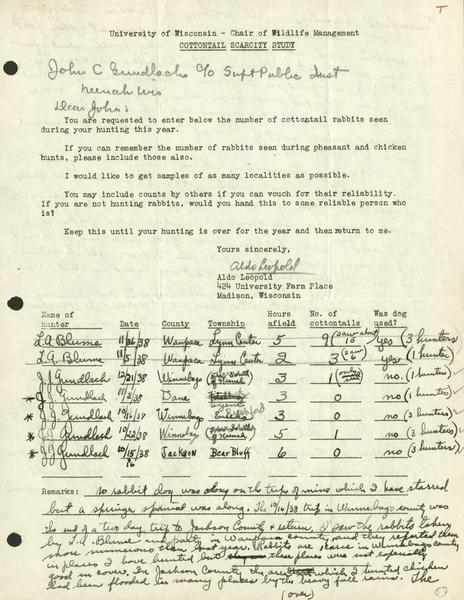 T
University of Wisconsin - Chair of Wildlife Management
COTTONTAIL SCARCITY STUDY
John C Gundlach c/o Supt Public Inst
Neenah Wis
Dear John:
You are requested to enter below the number of cottontail rabbits seen
during your hunting this year.
If you can remember the number of rabbits seen during pheasant and chicken
hunts, please include those also.
I would like to get samples of as many localities as possible.
You may include counts by others if you can vouch for their reliability.
If you are not hunting rabbits, would you hand this to some reliable person who
is?
Keep this until your hunting is over for the year and then return to me.
Yours sincerely,
Aldo Leopold
Aldo Leopold
424 University Farm Place
Madison, Wisconsin
Name of hunter Date County Township Hours afield No. of cottontails Was dog used?
L.A. Blume 11/26/38 Waupaca Lynn Center 5 9 (saw about 15 yes (3 hunters)
L.A. Blume 11/5/38 Waupaca Lynn Center 2 3 (saw 6) yes (1 hunter)
J J Gundlach 12/21/38 Winnebago 3 1 no. (1 hunter)
* J J Gundlach 11/2/38 Dane 3 0 no (1 hunter)
* J J Gundlach 10/16/38 Winnebago 3 0 no (3 hunters)
* J J Gundlach 10/22/38 Winnebago 5 1 no (3 hunters)
* J J Gundlach 10/15/38 Jackson Bear Bluff 6 0 no (3 hunters)
16
Remarks: No rabbit dog was along on the trips of mine which I have starred
but a springer spaniel was along. The 10/16/38 trip in Winnebago county was
the end of a two day trip to Jackson County & return. I saw the rabbits taken
by L.A. Blume and party in Waupaca county and they reported them
more numerous than last year. Rabbits are scarce in Winnebago county
in places I have hunted but these places was not especially
good in cover. In Jackson County the area which I hunted chicken
had been flooded in many places by the heavy fall rains. The
(over)